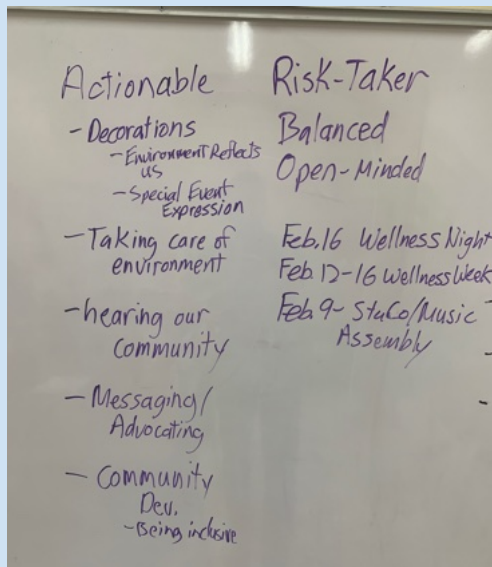 Actionable
- Decorations
- Environment Reflects
us
- Special Event
Expression
- Taking care of
environment
- hearing our
community
- Messaging/
Advocating
- Community
Dev.
- Being inclusive
Risk-Taker
Balanced
Open-Minded
Feb. 16 Wellness Night
Feb. 12-16 Wellness Week
Feb. 9- StuCo/Music
Assembly